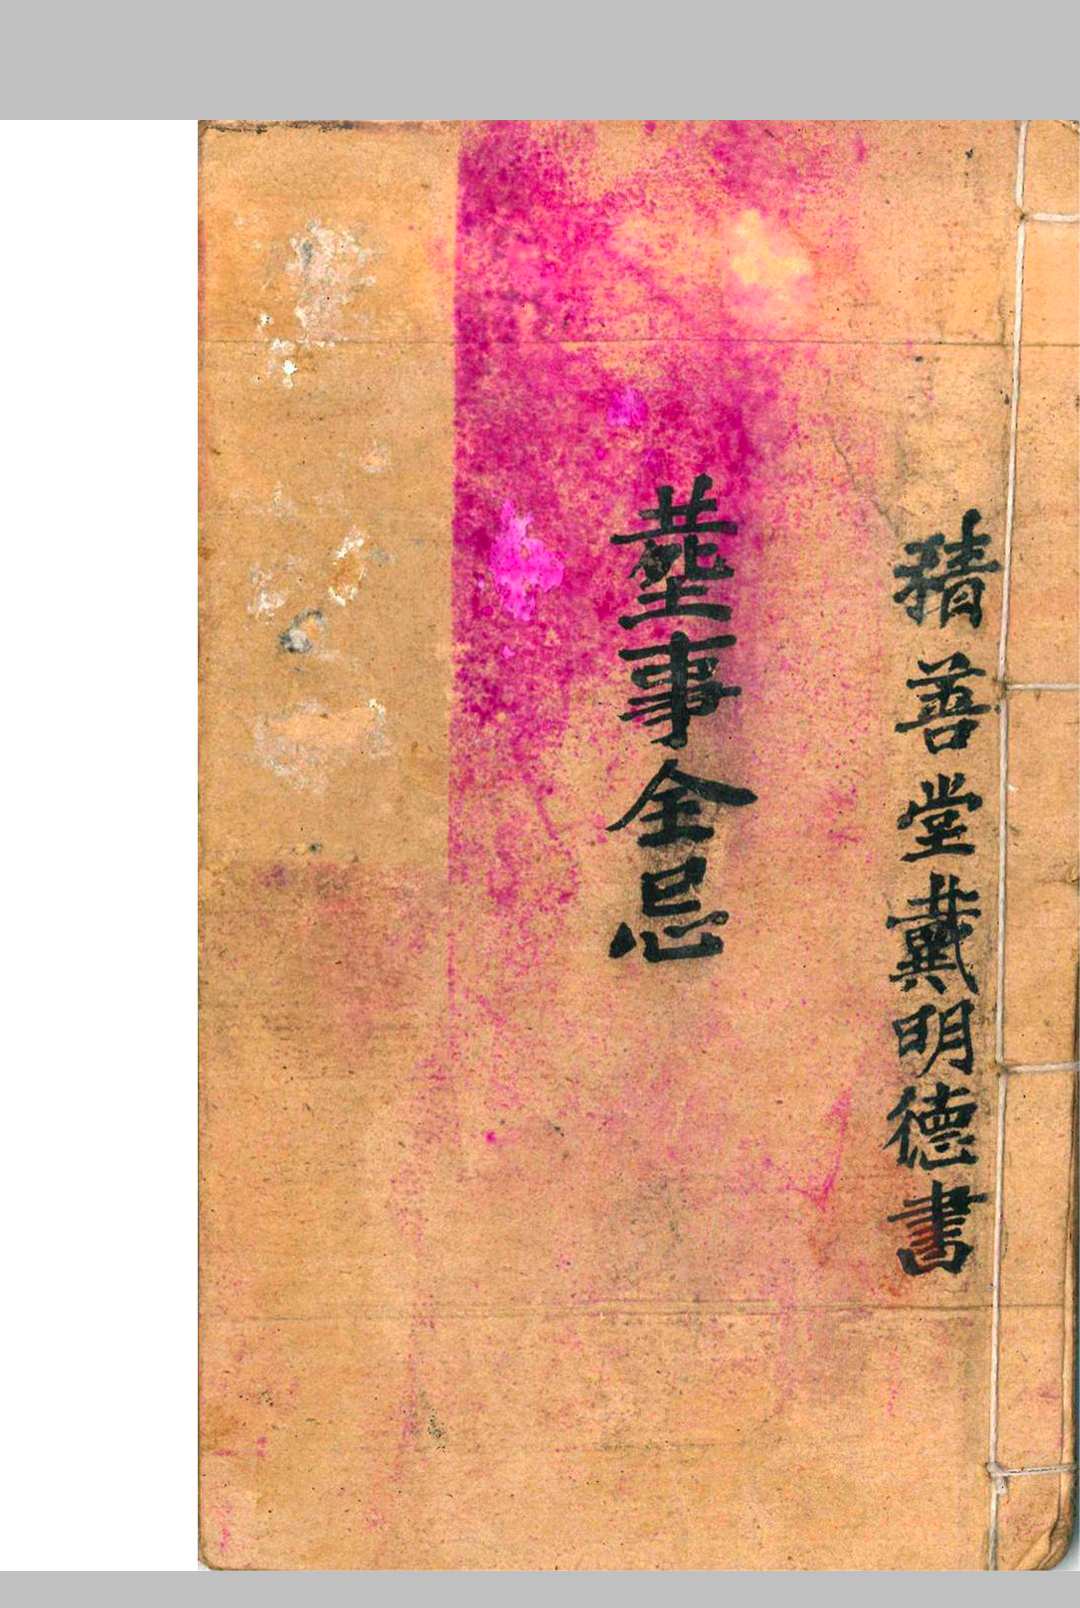 積善堂戴明德書
塟事全忌